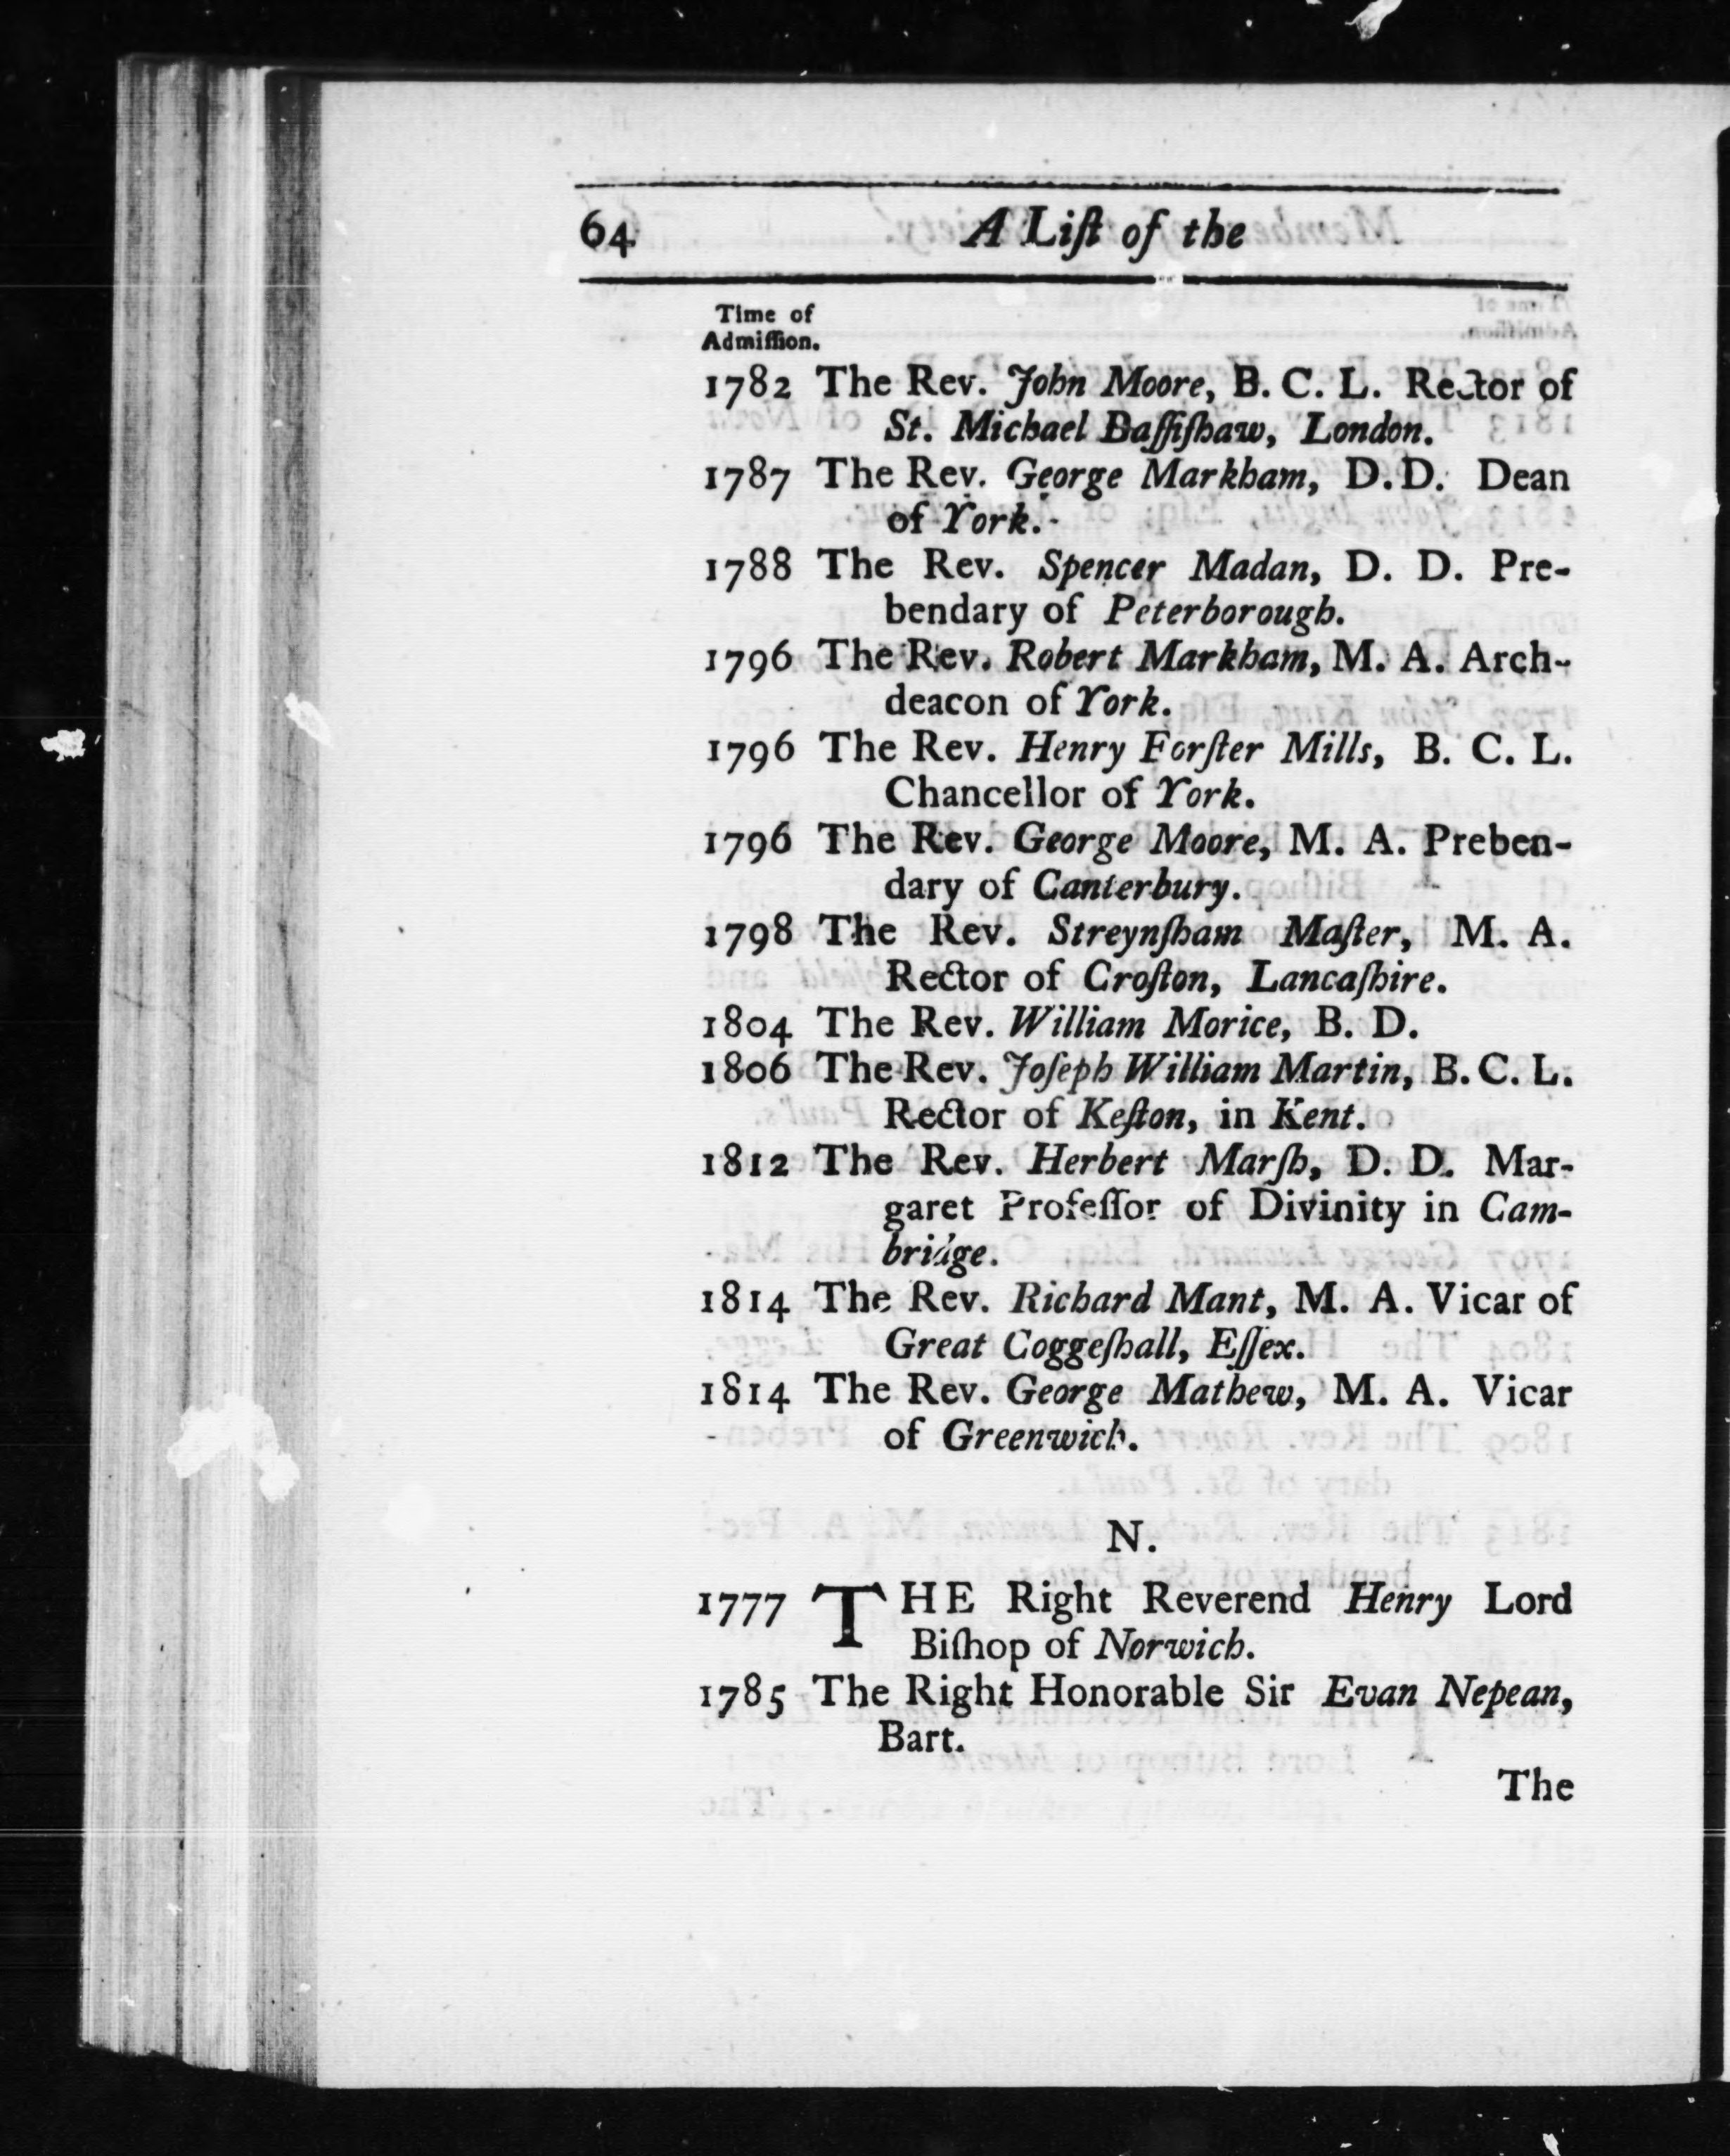 64 A Liſt of the
Time of
Admiſſion.
1782 The Rev. John Moore, B. C. L. Rector of
St. Michael Baſſiſhaw, London.
1787 The Rev. George Markham, D.D. Dean
of York.
1788 The Rev. Spencer Madan, D. D. Pre-
bendary of Peterborough.
1796 The Rev. Robert Markham, M. A. Arch-
deacon of York.
1796 The Rev. Henry Forſter Mills, B. C. L.
Chancellor of York.
1796 The Rev. George Moore, M. A. Preben-
dary of Canterbury.
1798 The Rev. Streynſham Maſter, M. A.
Rector of Croſton, Lancaſhire.
1804 The Rev. William Morice, B. D.
1806 The Rev. Joſeph William Martin, B. C. L.
Rector of Keſton, in Kent.
1812 The Rev. Herbert Marſh, D. D. Mar-
garet Profeſſor of Divinity in Cam-
bridge.
1814 The Rev. Richard Mant, M. A. Vicar of
Great Coggeſhall, Eſſex.
1814 The Rev. George Mathew, M. A. Vicar
of Greenwich.
N.
1777 THE Right Reverend Henry Lord
Biſhop of Norwich.
1785 The Right Honorable Sir Evan Nepean,
Bart.
The